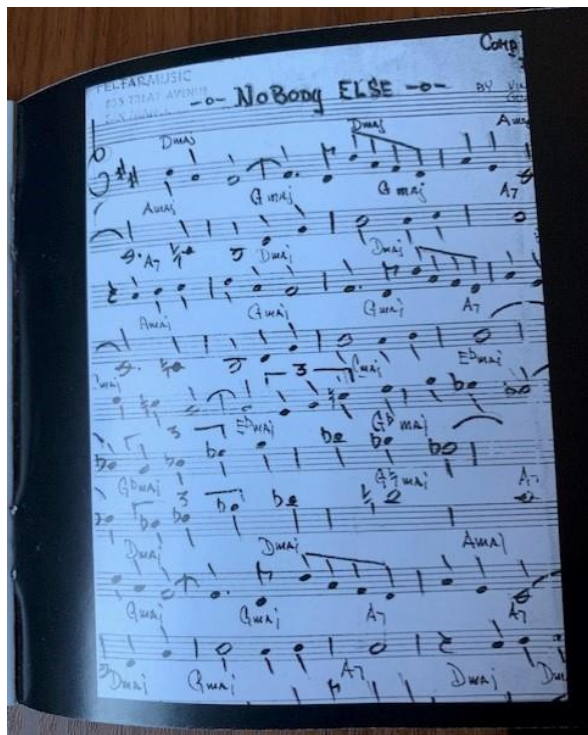 COMP
TELFARMUSIC
-o- NOBODY ELSE -o- BY
Dmaj Dmaj Amaj
Amaj Gmaj Gmaj A7
A7 Dmaj Dmaj
Amaj Gmaj Gmaj A7
3 Ebmaj
3 Ebmaj Gbmaj
Gbmaj 3 G♮maj A7
Dmaj Dmaj Amaj
Gmaj Gmaj A7 A7
3
Dmaj Gmaj A7 Dmaj